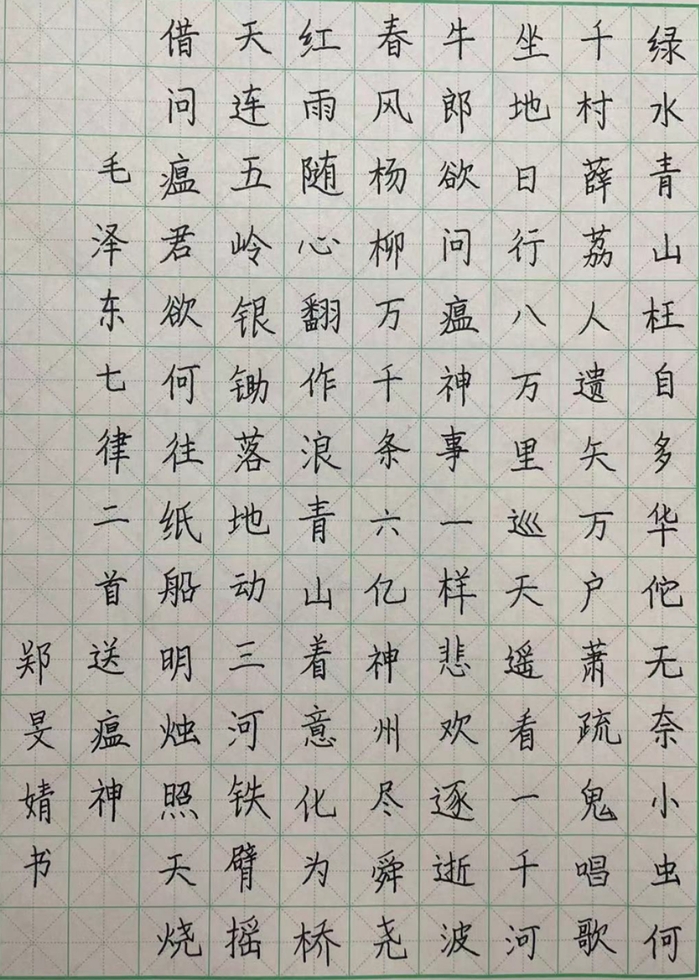 绿水青山枉自多华佗无奈小虫何
千村薛荔人遗矢万户萧疏鬼唱歌
坐地日行八万里巡天遥看一千河
牛郎欲问瘟神事一样悲欢逐逝波
春风杨柳万千条六亿神州尽舜尧
红雨随心翻作浪青山着意化为桥
天连五岭银锄落地动三河铁臂摇
借问瘟君欲何往纸船明烛照天烧
毛泽东七律二首送瘟神
郑旻婧书